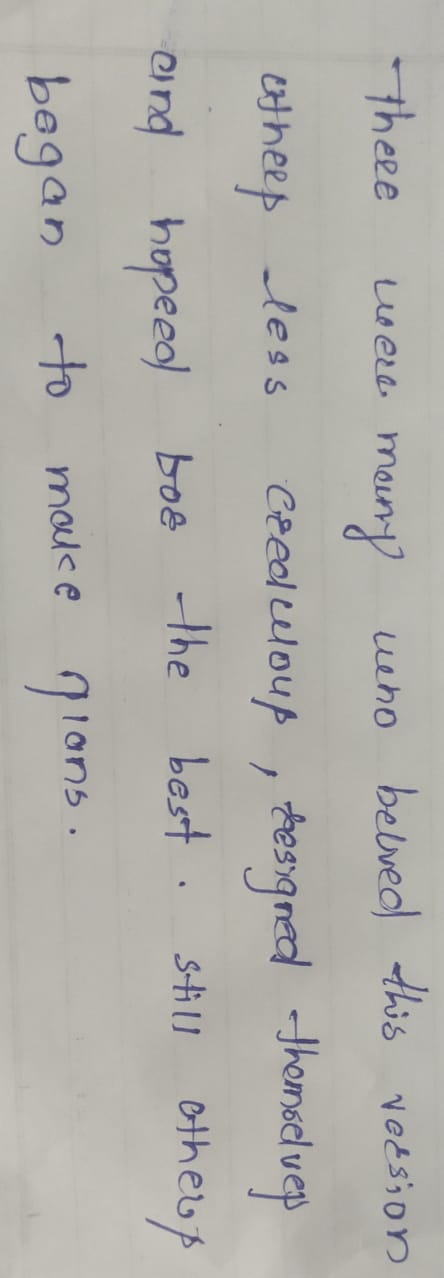 There were many who belved this version
others less credulous, resigned themselves
and hopeed for the best. still others
began to make plans.